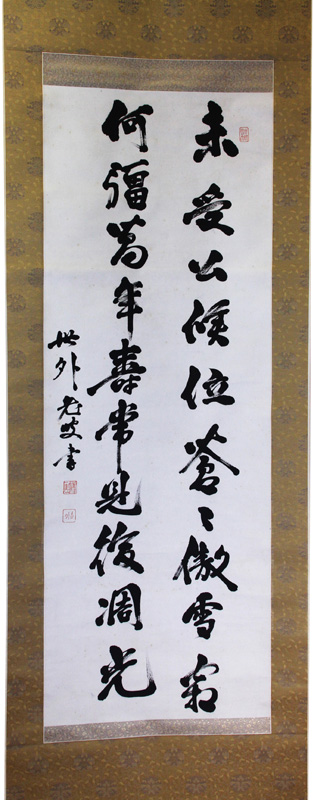 未受公候位蒼々傲雪霜
何彊萬年壽常見後凋光
世外老叟書